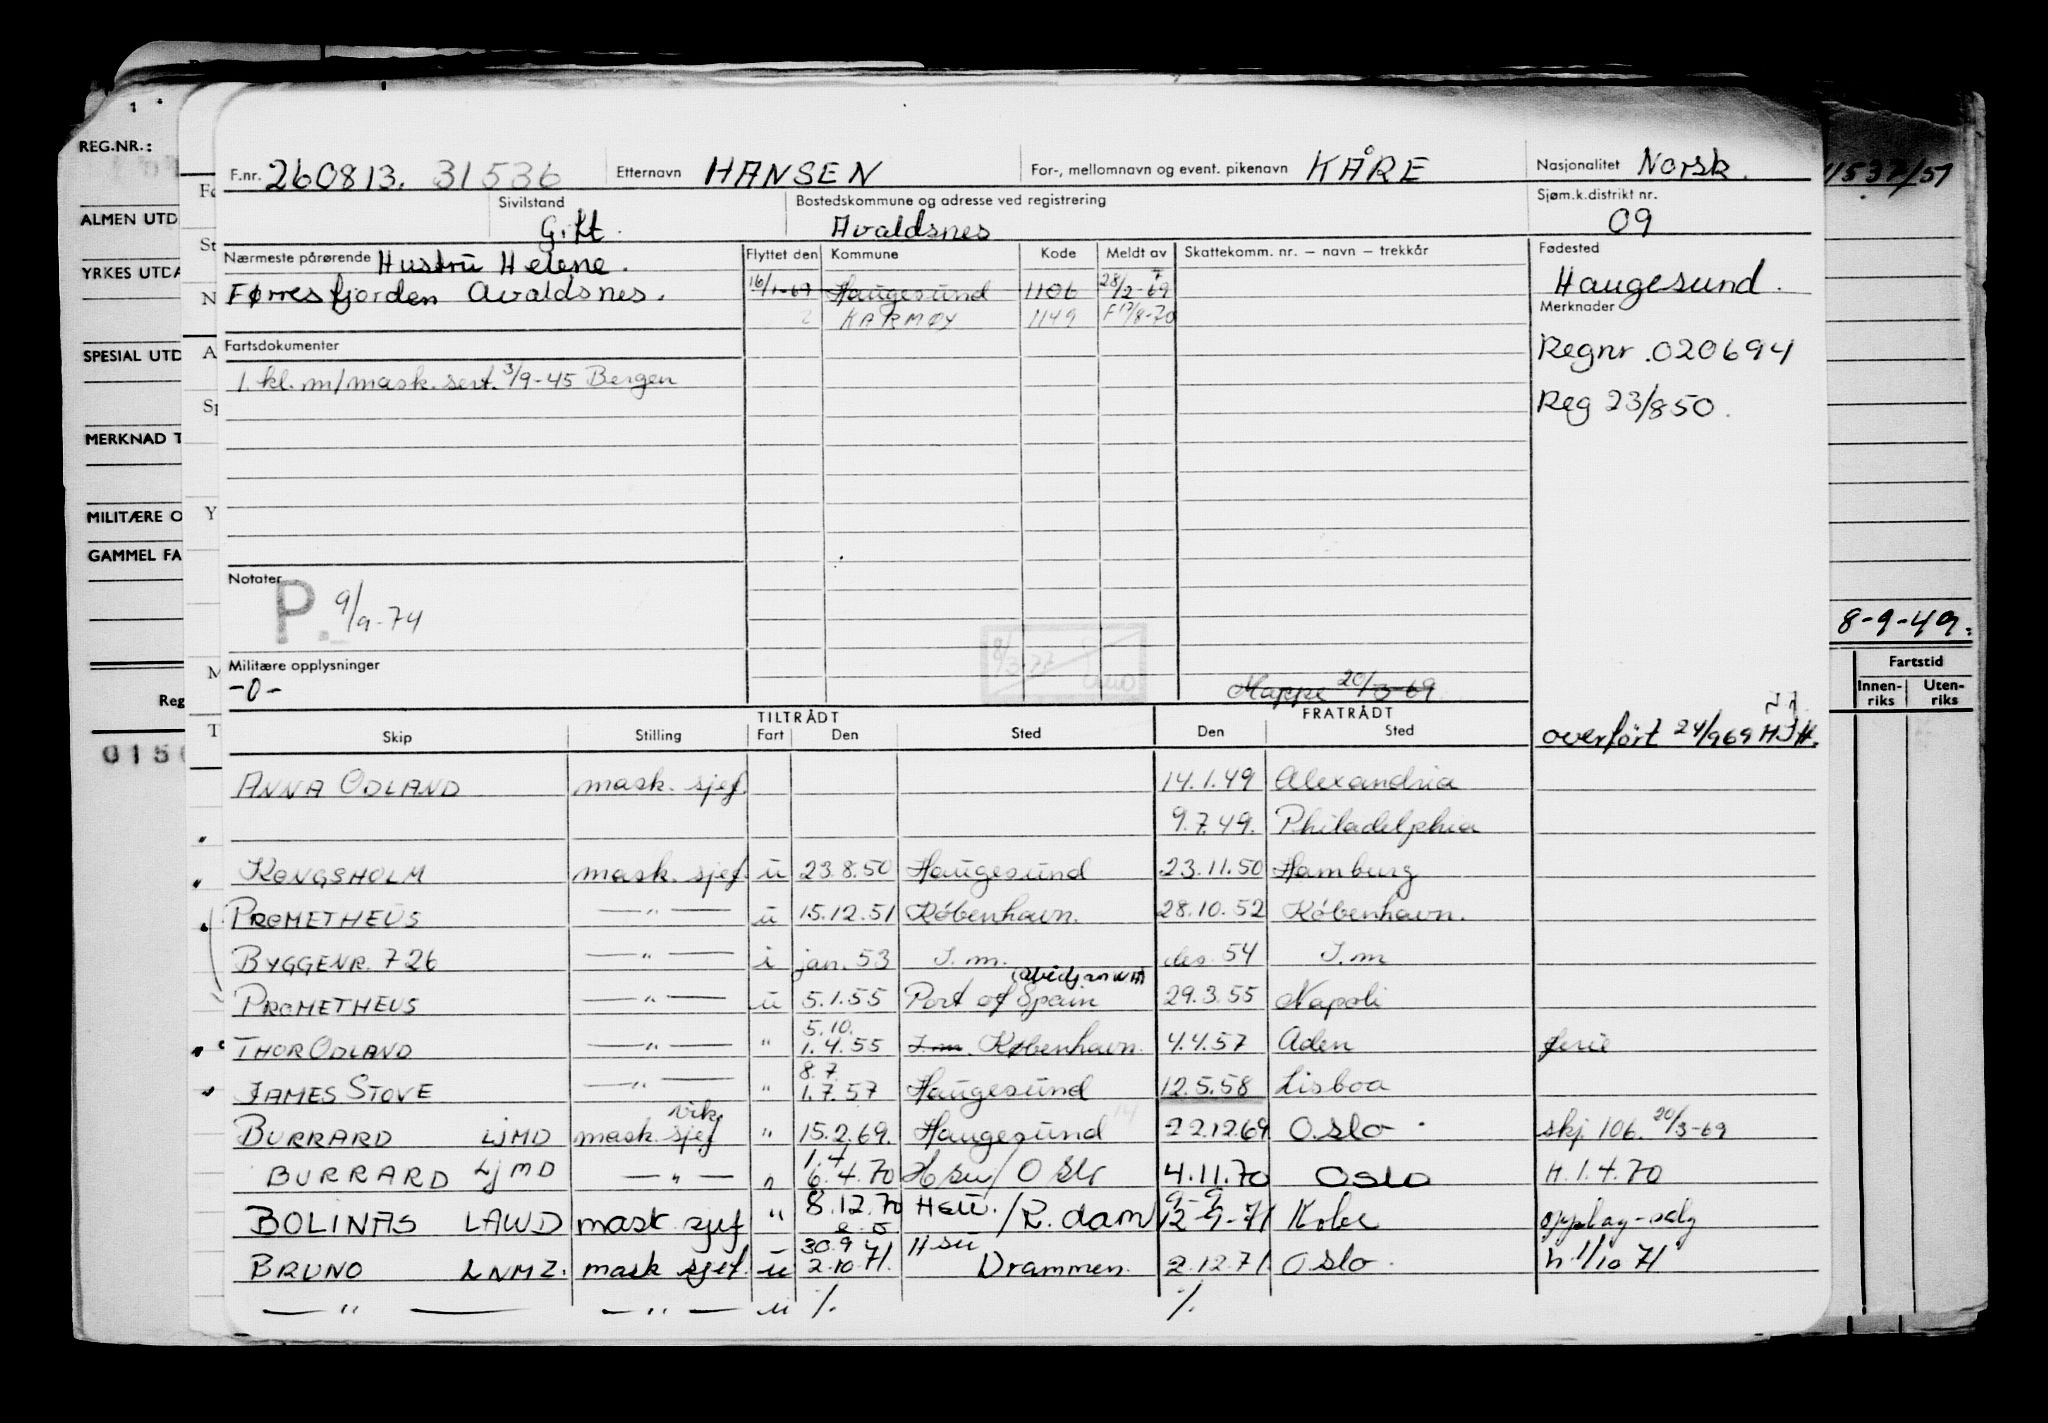 1
REG.NR.:
ALMEN UTD
YRKES UTDA
SPESIAL UTD
MERKNAD T
MILITÆRE O
GAMMEL FA
Reg
Fo
St
N
A
Sp
Y
M
T
F.nr. 260813. 31536 Etternavn HANSEN For-, mellomnavn og event. pikenavn KÅRE Nasjonalitet Norsk.
Sivilstand Gift. Bostedskommune og adresse ved registrering Avaldsnes Sjøm.k.distrikt nr. 09
Nærmeste pårørende Hustru Helene. Flyttet den Kommune Kode Meldt av Skattekomm. nr. – navn – trekkår Fødested
Førresfjorden Avaldsnes. 16/1-69 Haugesund 1106 28/2-69 Haugesund.
2 KARMØY 1149 F17/8-70 Merknader
Fartsdokumenter Regnr. 020694
1. kl. m/mask. sert. 3/9-45 Bergen Reg 23/850.
Notater
P. 9/9-74
8/3-77
Militære opplysninger
-0- Mappe 20/3-69
TILTRÅDT FRATRÅDT
Skip Stilling Fart Den Sted Den Sted overført 24/969 HJH.
ANNA ODLAND mask. sjef. 14.1.49 Alexandria
9.7.49. Philadelphia
KONGSHOLM mask. sjef. u 23.8.50 Haugesund 23.11.50 Hamburg
PROMETHEUS —"— u 15.12.51 København. 28.10.52 København.
BYGGENR. 726 —"— i jan. 53 I.m. des. 54 I.m
PROMETHEUS —"— u 5.1.55 Port of Spain 29.3.55 Napoli
5.10.
THOR ODLAND —"— " 1.4.55 I.m. København. 4.4.57 Aden ferie
8.7.
JAMES STOVE —"— " 1.7.57 Haugesund 12.5.58 Lisboa
vik.
BURRARD LJMD mask. sjef " 15.2.69. Haugesund 14 22.12.69 Oslo. skj. 106. 20/3-69
1.4
BURRARD LJMD —"— " 6.4.70 Hsu/Oslo 4.11.70 Oslo H. 1.4.70
9-9
BOLINAS LAWD mask sjef " 8.12.70 Hsu./R.dam 12-9-71 Kobe opplag-salg
30.9 Hsu
BRUNO LNMZ. mask sjef. u 2.10.71. Drammen. 2.12.71. Oslo. h. 1/10 71
—"— —"— u %. %.
1537/51
8-9-49.
Fartstid
Innen-riks Uten-riks